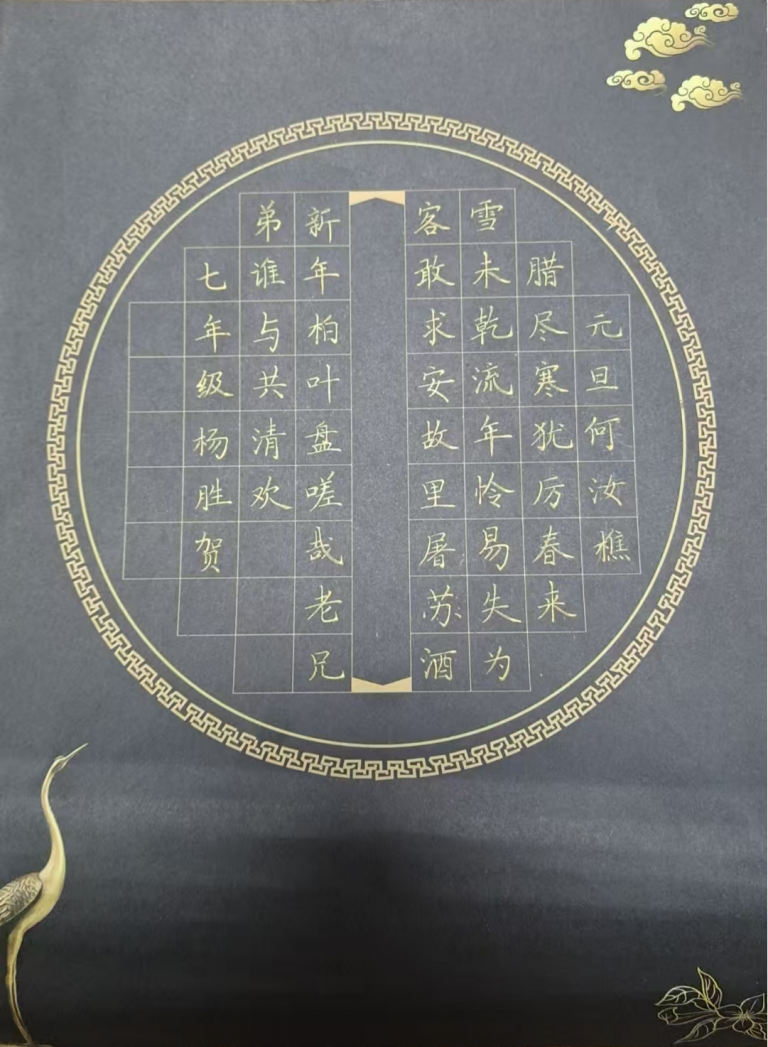 元旦何汝樵
腊尽寒犹厉春来
雪未乾流年怜易失为
客敢求安故里屠苏酒
新年柏叶盘嗟哉老兄
弟谁与共清欢
七年级杨胜贺